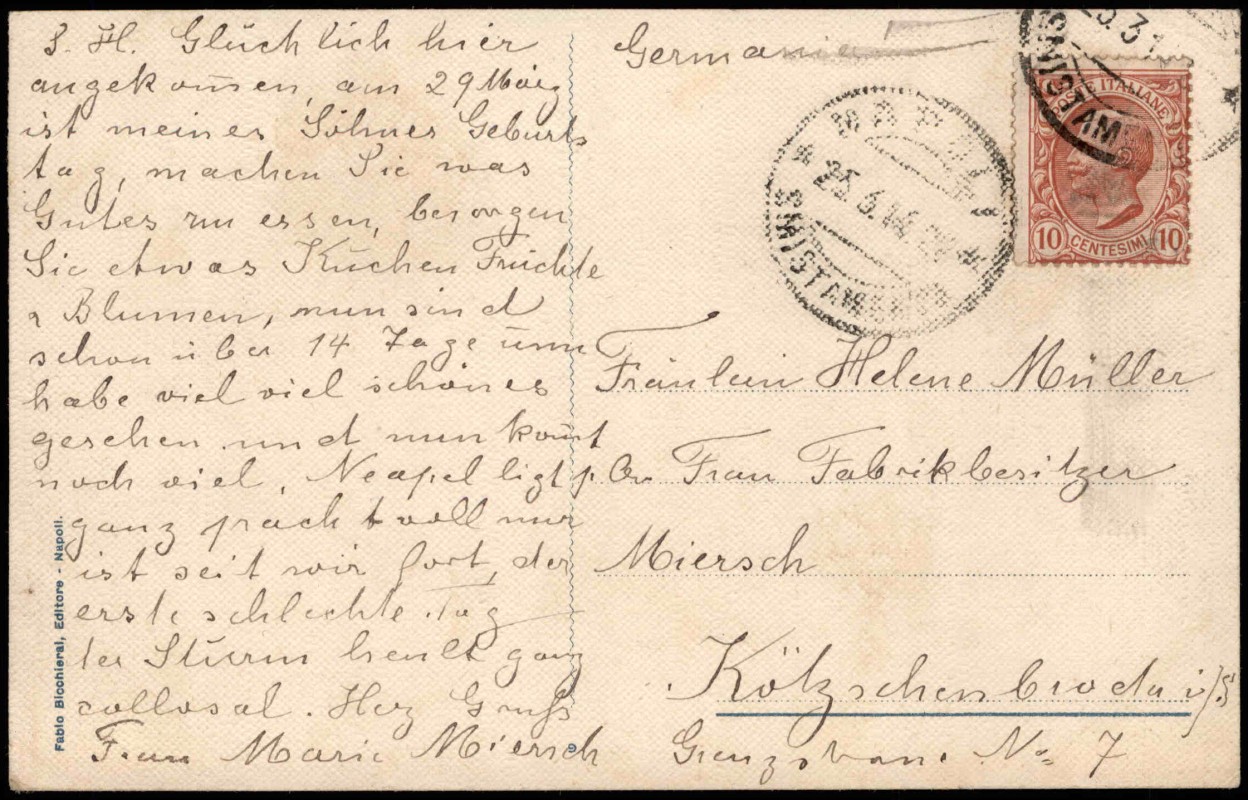 S. H. Glücklich hier
angekom̄en, am 29 März
ist meines Sohnes Geburts
tag, machen Sie was
Gutes zu essen, besorgen
Sie etwas Kuchen Früchte
u Blumen, nun sind
schon über 14 Tage um
habe viel viel schönes
gesehen und nun kom̄t
noch viel, Neapel ligt
ganz prachtvoll nur
ist seit wir fort, der
erste schlechte Tag
der Sturm heult ganz
collosal. Herz Gruß
Frau Marie Miersch
Fabio Bicchierai, Editore - Napoli.
Germania
NAPOLI
25.3.14
SMISTAMENTO
25.3.1
SMISTAM
POSTE ITALIANE
10 CENTESIMI 10
Fräulein Helene Müller
Frau Fabrikbesitzer
Miersch
Kötzschenbroda i/S
No 7